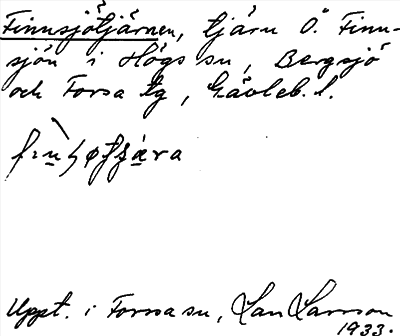 Finnsjötjärnen, tjärn Ö. Finn-
sjön i Högs sn, Bergsjö
och Forsa tg, Gävleb. l.
Uppt. i Forssa sn, Lars Larsson
1933.